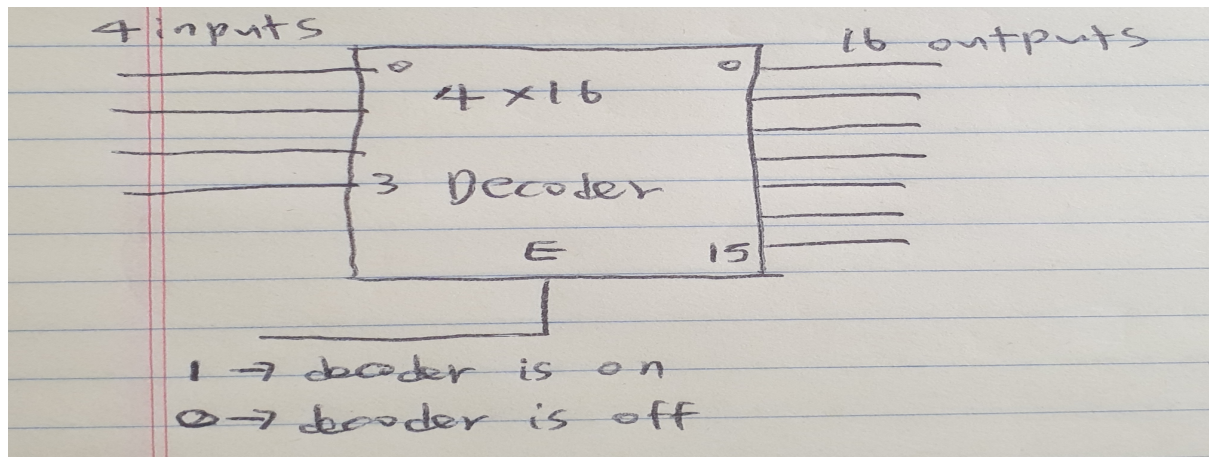 4 inputs
16 outputs
0 0
4 × 16
3 Decoder
E 15
1 → decoder is on
0 → decoder is off